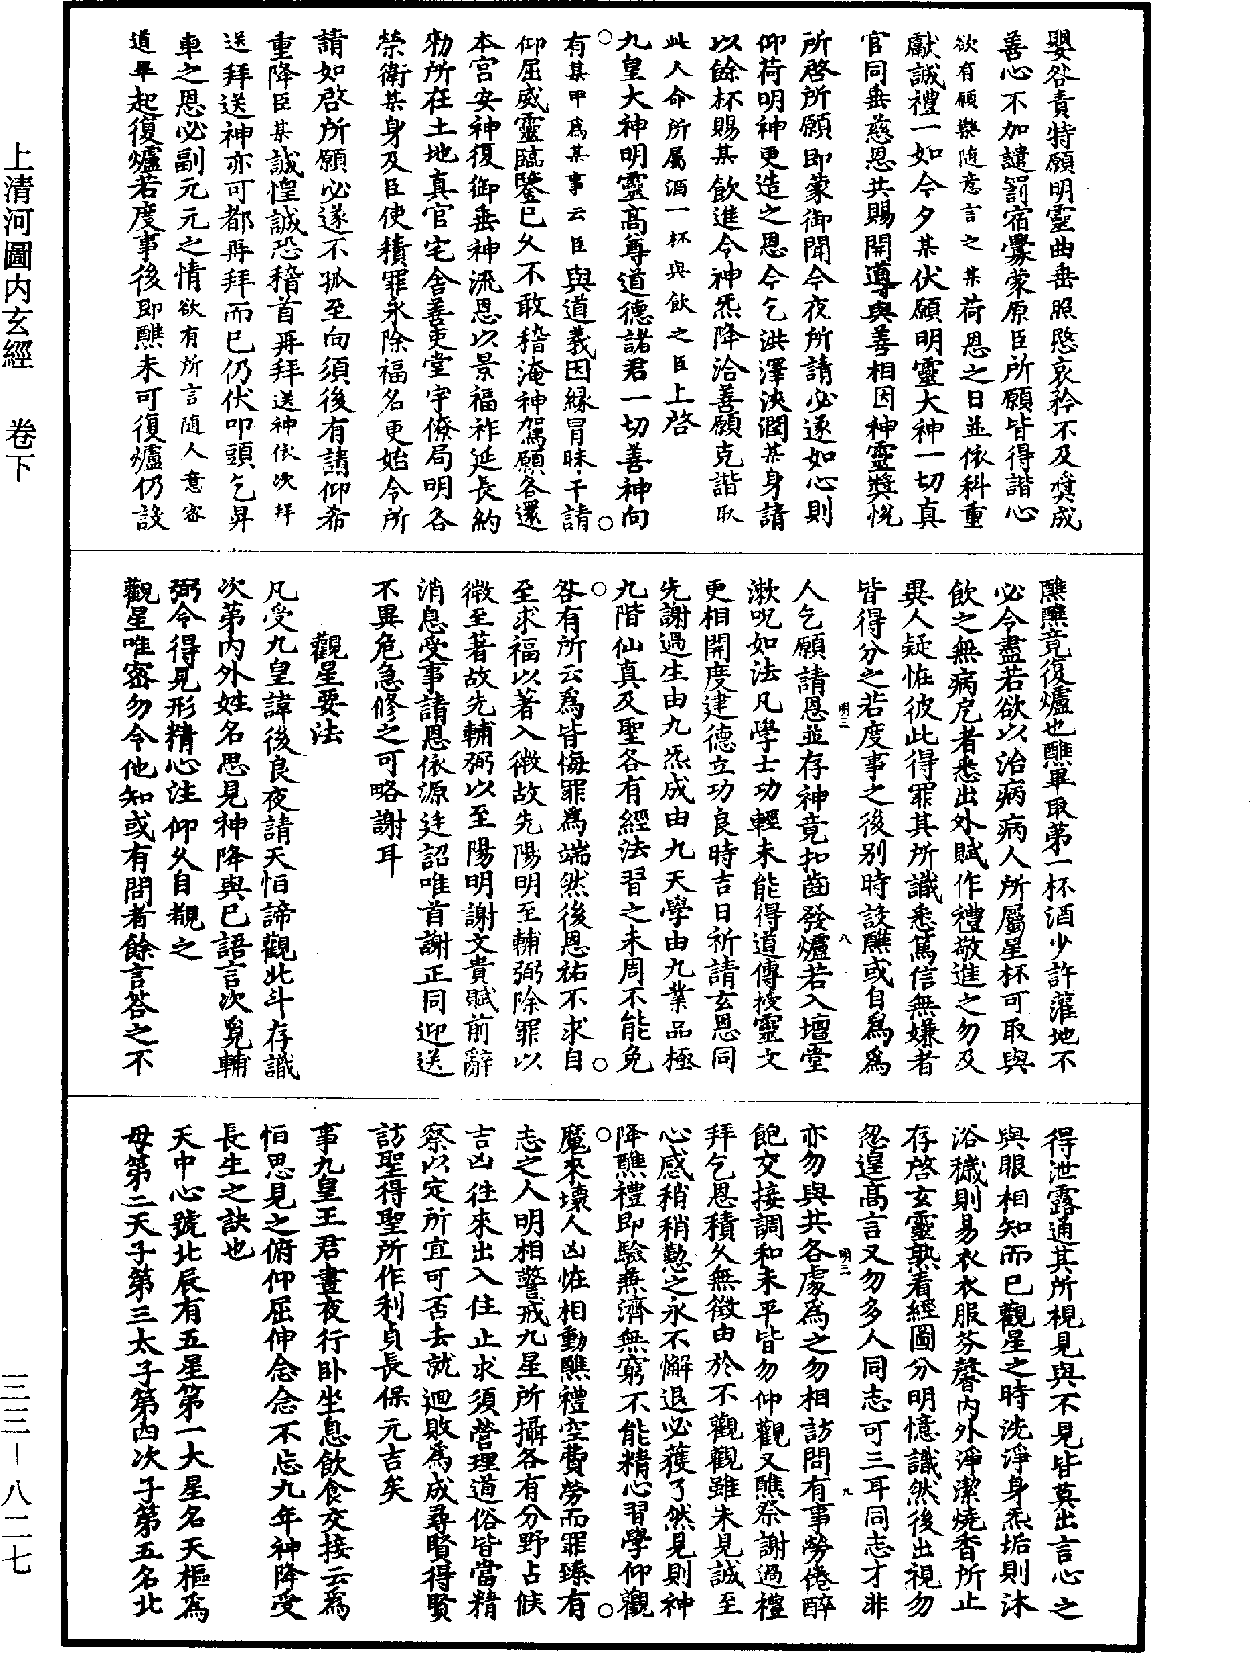 上清河圖内玄經　卷下
三三－八二七
嬰咎責特願明靈曲垂照愍哀矜不及奬成
善心不加譴罰宿釁蒙原臣所願皆得諧心
欲有願樂隨意言之某荷恩之日並依科重
獻誠禮一如今夕某伏願明靈大神一切真
官同垂慈恩共賜開導與善相因神靈奬悅
所啓所願即蒙御聞今夜所請必遂如心則
仰荷明神更造之恩今乞洪澤浹潤某身請
以餘杯賜某飲進令神炁降洽善願克諧取
此人命所屬酒一杯與飲之臣上啓
九皇大神明靈高尊道德諸君一切善神向
有某甲爲某事云臣與道義因緣冒昧干請
仰屈威靈臨鑒已久不敢稽淹神駕願各還
本宮安神復御垂神流恩以景福祚延長約
勑所在土地真官宅舍善吏堂宇僚局明各
榮衛某身及臣使積罪永除福名更始令所
請如啓所願必遂不孤至向須後有請仰希
重降臣某誠惶誠恐稽首再拜送神依次拜
送拜送神亦可都再拜而已仍伏叩頭乞昇
車之恩必副元元之情欲有所言隨人意容
道畢起復爐若度事後即醮未可復爐仍設
醮醮竟復爐也醮畢取第一杯酒少許灌地不
必令盡若欲以治病病人所屬星杯可取與
飲之無病戹者悉出外賦作禮敬進之勿及
異人疑恠彼此得罪其所識悉篤信無嫌者
皆得分之若度事之後别時設醮或自爲爲
人乞願請恩並存神竟扣齒發爐若入壇堂
漱呪如法凡學士功輕未能得道傳授靈文
更相開度建德立功良時吉日祈請玄恩同
先謝過生由九炁成由九天學由九業品極
九階仙真及聖各有經法習之未周不能免
咎有所云爲皆悔罪爲端然後恩祐不求自
至求福以著入微故先陽明至輔弼除罪以
微至著故先輔弼以至陽明謝文貴賦前辭
消息受事請恩依源迮詔唯首謝正同迎送
不異危急修之可略謝耳
觀星要法
凡受九皇諱後良夜請天怕諦觀北斗存識
次第内外姓名思見神降與已語言次覓輔
弼令得見形精心注仰久自覩之
觀星唯密勿令他知或有問者餘言答之不
得泄露通其所視見與不見皆莫出言心之
與眼相知而已觀星之時洗淨身炁垢則沐
浴穢則易衣衣服芬馨内外淨潔燒香所止
存啓玄靈熟看經圖分明憶識然後出視勿
忽遑高言又勿多人同志可三耳同志才非
亦勿與共各處爲之勿相訪問有事勞倦醉
飽交接調和未平皆勿仲觀又醮祭謝過禮
拜乞恩積久無徵由於不觀觀雖未見誠至
心感稍稍懃之永不懈退必獲了然見則神
降醮禮即驗兼濟無窮不能精心習學仰觀
魔來壞人凶恠相動醮禮空費勞而罪臻有
志之人明相警戒九星所攝各有分野占候
吉凶往來出入住止求須營理道俗皆當精
察以定所宜可否去就迴敗爲成尋賢得賢
訪聖得聖所作利貞長保元吉矣
事九皇王君晝夜行卧坐息飲食交接云爲
怕思見之俯仰屈伸念念不忘九年神降受
長生之訣也
天中心號北辰有五星第一大星名天樞爲
母第二天子第三太子第四次子第五名北